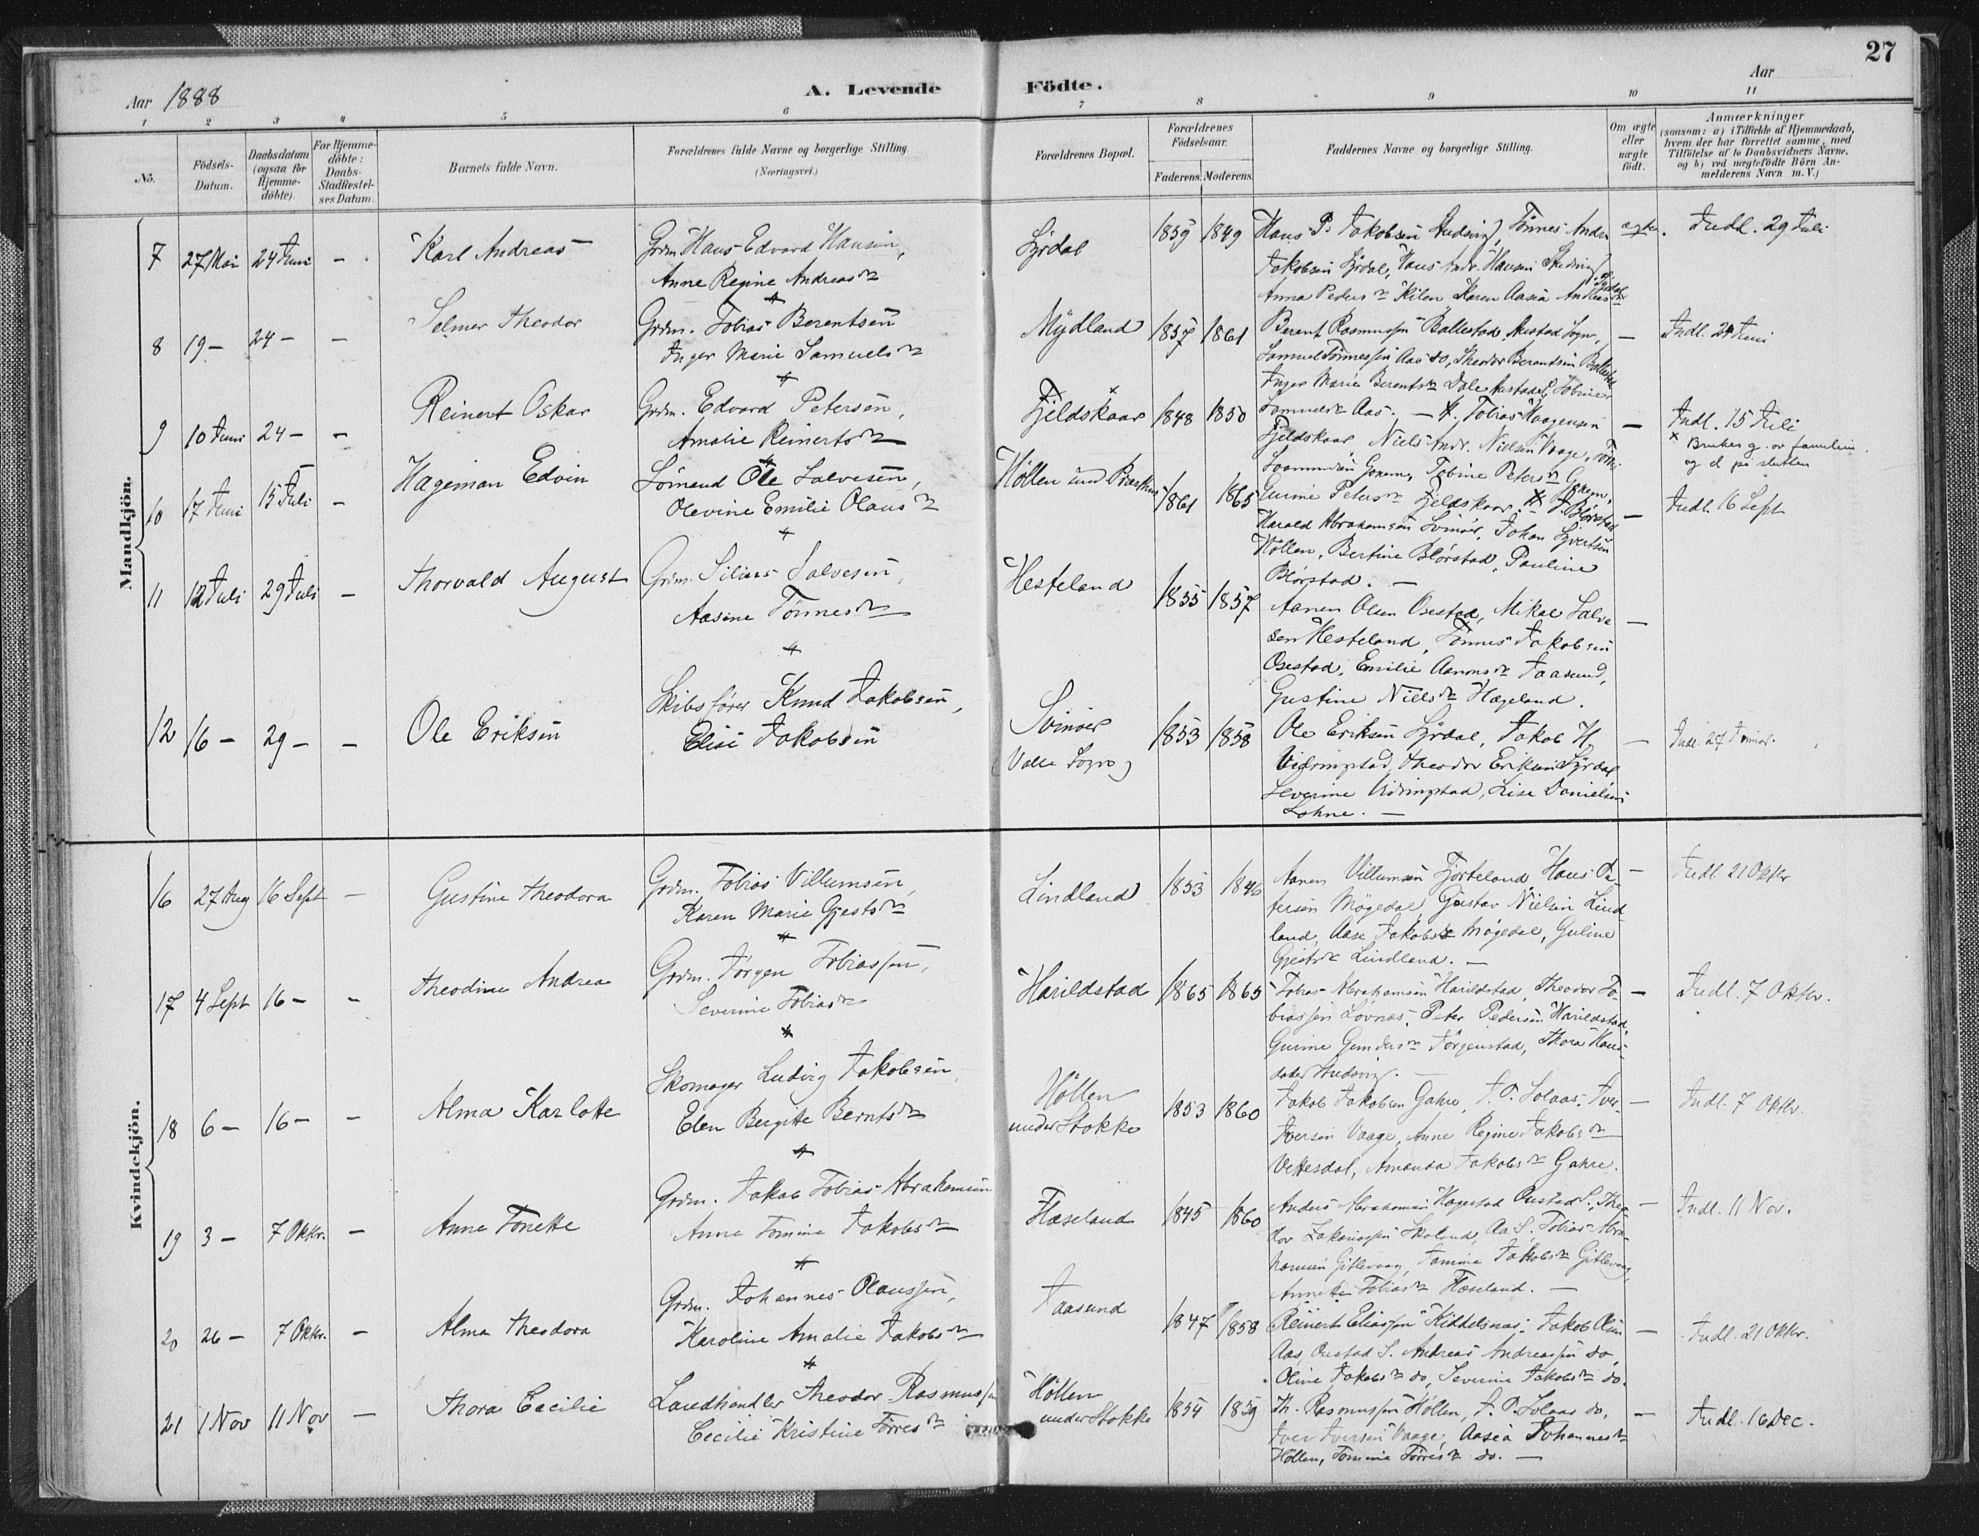 27
Aar 1888
A. Levende Födte.
Aar
1 2 3 4 5 6 7 8 9 10 11
No.
Födsels-Datum.
Daabsdatum (ogsaa for Hjemmedöbte).
For Hjemmedöbte: Daabs-Stadfæstelses Datum.
Barnets fulde Navn.
Forældrenes fulde Navne og borgerlige Stilling (Næringsvei.)
Forældrenes Bopæl.
Forældrenes Födselsaar.
Faderens. Moderens.
Faddernes Navne og borgerlige Stilling.
Om ægte eller uægte födt.
Anmærkninger
(saasom: a) i Tilfælde af Hjemmedaab, hvem der har forrettet samme, med Tilföielse af to Daabsvidners Navne, og b) ved uægtefödte Börn Anmelderens Navn m. V.)
Mandkjön.
7 27 Mai 24 Juni - Karl Andreas
Grdm. Hans Edvard Hansen,
Anne Regine Andreasdr
Lyrdal 1859 1849
Hans P. Jakobsen Audvig, Tönnes Andr.
Jakobsen Lyrdal, Hans Andr. Hansen
Anna Pedersdr Kilen Karen Aasia Andreasdr
ægte. Indl. 29 Juli
8 19 - 24 - - Selmer Theodor
Grdm. Tobias Berentsen
Inger Marie Samuelsdr
Mydland 1857 1861
Berent Rasmussen Ballestad, Austad Sogn,
Samuel Tönnessen Aas do, Theodor Berentsen Ballestad
Inger Marie Berentsdr Dale
Aas. -
- Indl. 24 Juni
9 10 Juni 24 - - Reinert Oskar
Grdm. Edvard Petersen,
Amalie Reinertsdr
Fjeldskaar 1848 1850
Tobias Haagensen
Fjeldskaar Niels Andr. Nielsen Vaage,
Tobine Petersdr
Gurine Petersdr Fjeldskaar.
- Indl. 15 Juli
x Bruker g. av familien
og d på slutten
10 17 Juni 15 Juli - Hageman Edvin
Sömand Ole Salvesen,
Olevine Emilie Olausdr
Höllen 1861 1865
Blörstad
Harald Abrahamsen Svinöer, Johan Syvertsen
Höllen, Bertine Blörstad, Pauline
Blörstad. -
- Indl. 16 Sept
11 12 Juli 29 Juli - Thorvald August
Grdm. Silius Salvesen,
Aasine Tönnesdr
Hesteland 1855 1857
Aanen Olsen Osestad, Mikal Salve
sen Hesteland, Tönnes Jakobsen
Osestad, Emilie Aanonsdr Jaasund,
Gustine Nielsdr Hægeland.
-
12 16 - 29 - - Ole Eriksen
Skibsförer Knud Jakobsen,
Elise Jakobsen
Svinöer
(Valle Sogn) 1853 1858
Ole Eriksen Lyrdal, Jakob H
Vidringstad, Theodor Eriksen Lyrdal
Severine Vidringstad, Lise Danielsen
Lohne. -
- Indl. 27 Januar.
Kvindekjön.
16 27 Aug 16 Sept - Gustine Theodora
Grdm. Tobias Villumsen,
Karen Marie Gjestsdr
Lindland 1853 1846
Aanen Villumsen Fjörteland Hans Pe-
tersen Mögedal, Gustav Nielsen Lind-
land, Aase Jakobsdr Mögedal, Guline
Gjestsdr Lindland. -
- Indl. 21 Oktbr
17 4 Sept 16 - - Theodine Andrea
Grdm. Jörgen Tobiassen,
Severine Tobiasdr
Harildstad 1865 1865
Tobias Abrahamsen Harildstad, Theodor To-
biassen Lövnæs, Peter Pedersen Harildstad,
Gurine Gundersdr Jörgenstad, Thora Hans
-
- Indl. 7 Oktbr.
18 6 - 16 - - Alma Karlotte
Skomager Ludvig Jakobsen,
Elen Bergitte Berntsdr
Höllen
under Stokke 1853 1860
Jakob Jakobsen Gahre, J. P. Solaas, Iver
Iversen Vaage, Anne Regine Jakobsdr
Vettesdal, Amanda Jakobsdr Gahre.
- Indl. 7 Oktbr.
19 3 - 7 Oktbr. - Anne Tonette
Grdm. Jakob Tobias Abrahamsen
Anne Tomine Jakobsdr
Fæseland 1845 1860
Anders Abrahamsen Hagestad Oustad S. Theo
dor Zakariassen Skoland, Aa S, Tobias Abra-
hamsen Gitlevaag, Tomine Jakobsdr Gitlevaag,
Tobiasdr Fæseland. -
- Indl. 11 Nov.
20 26 - 7 Oktbr. - Alma Theodora
Grdm. Johannes Olaussen,
Karoline Amalie Jakobsdr
Jaasund 1847 1858
Reinert Eliassen Kiddelsnæs, Jakob Olsen
Aas, Oustad S. Andreas Andreassen do,
Oline Jakobsdr do, Severine Jakobsdr do.
- Indl. 21 Oktbr.
21 1 Nov 11 Nov - Thora Cecilie
Landhandler Theodor Rasmussen
Cecilie Kristine Törresdr
Höllen
under Stokke 1854 1859
Th. Rasmussen Höllen, J. P. Solaas do,
Iver Iversen Vaage, Aasea Johannesdr
Höllen, Tomine Törresdr do. -
- Indl. 16 Dec.